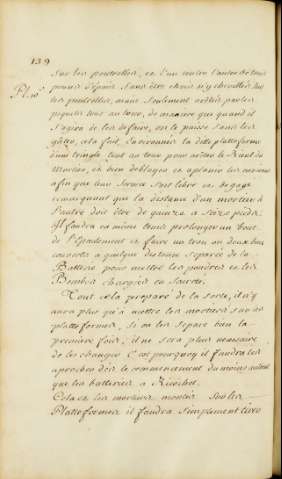 139
Pl. no
Sur les poutrelles, et d'un contre l'autre de trois
pouces d'épais sans être cloués n'y chevillés sur
les poutrelles, mais seulement arrêtés par les
piquets tout au tour, de maniere que quand il
s'agira de les defaire, on le puisse sans les
gâter, cela fait, environner la ditte platteforme
d'une tringle tout au tour pour arrêter le Recul du
Mortier, et bien deblayer et aplanir les environs
afin que leur Service soit libre et degagé
remarquant que la distance d'un mortier à
l'autre doit être de quinze a seize pieds.
Il faudra en même tems prolonger un bout
de l'Epaulement et faire un trou ou deux bien
couverts a quelque distance separée de la
Batterie pour mettre les poudres et les
Bombes chargées en Sureté.
Tout cela preparé de la sorte, il n'y
aura plus qu'a mettre les mortiers sur les
platteformes, Si on les Separe bien la
premiere fois, il ne sera plus necessaire
de les changer. C'est pourquoy il faudra les
aprocher dès le commencement du moins autant
que les batteries a Ricochet.
Cela et les mortiers montés Sur les
Platteformes il faudra Simplement tirer